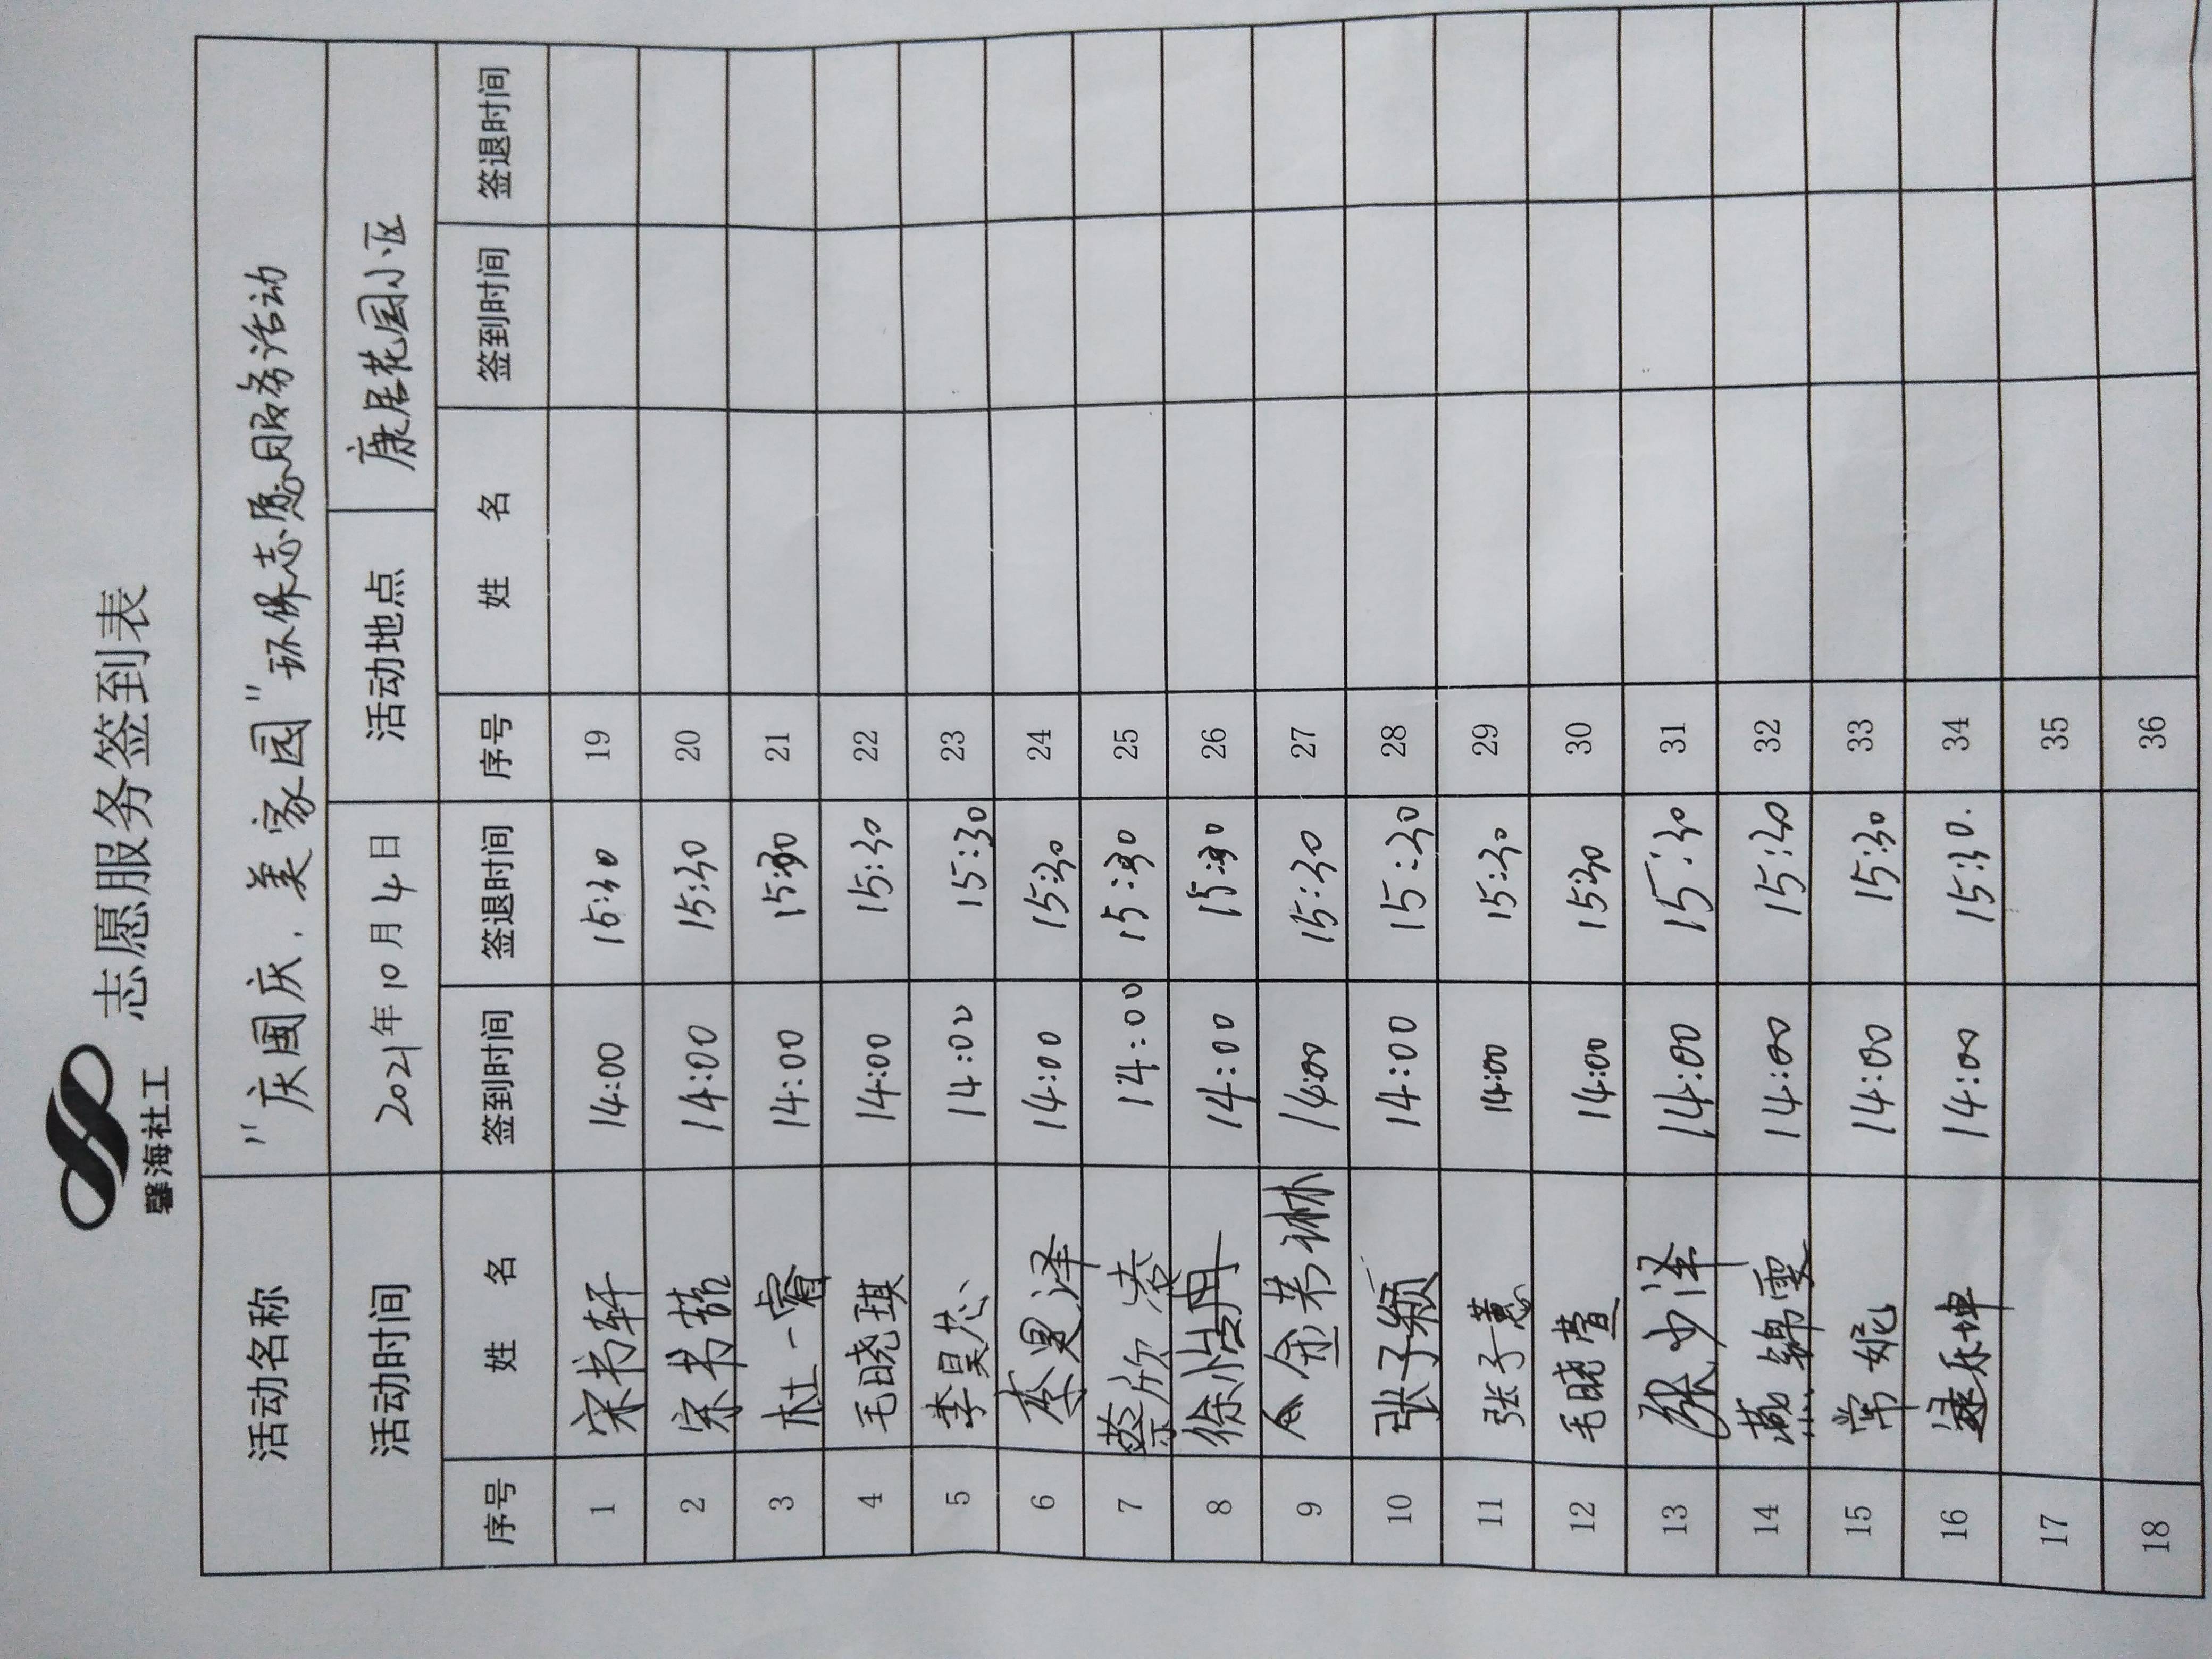 馨海社工
志愿服务签到表
活动名称 "庆国庆，美家园"环保志愿服务活动
活动时间 2021年10月4日 活动地点 康居花园小区
序号 姓 名 签到时间 签退时间 序号 姓 名 签到时间 签退时间
1 宋书轩 14:00 15:30 19
2 宋书喆 14:00 15:30 20
3 杜一睿 14:00 15:30 21
4 毛晓琪 14:00 15:30 22
5 李昊芯 14:00 15:30 23
6 李昊泽 14:00 15:30 24
7 蔡欣凌 14:00 15:30 25
8 徐怡冉 14:00 15:30 26
9 14:00 15:30 27
10 张子颖 14:00 15:30 28
11 张子蕙 14:00 15:30 29
12 毛晓萱 14:00 15:30 30
13 张少泽 14:00 15:30 31
14 燕锦雯 14:00 15:30 32
15 常妮 14:00 15:30 33
16 乐坤 14:00 15:30. 34
17 35
18 36